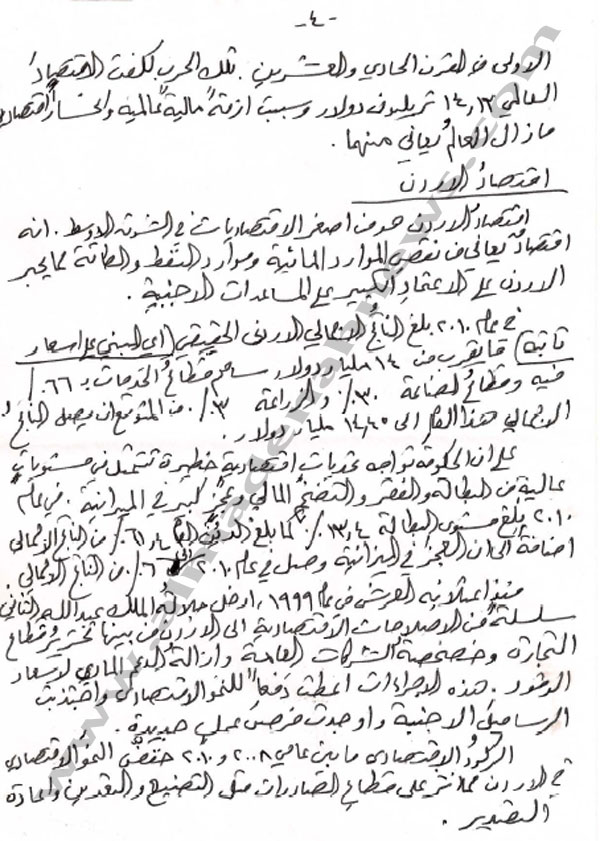 -٤-
الاولى في القرن الحادي والعشرين. تلك الحرب كلفت الاقتصاد
العالمي ١٤,٣ تريليون دولار وسببت ازمة مالية عالمية واقتصادية
ما زال العالم يعاني منها.
اقتصاد الاردن
اقتصاد الاردن هو من اصغر الاقتصاديات في الشرق الاوسط. انه
اقتصاد يعاني من نقص الموارد المائية وموارد النفط والطاقة مما يجبر
الاردن على الاعتماد الكبير على المساعدات الاجنبية.
في عام ٢٠١٠ بلغ الناتج الاجمالي الاردني الحقيقي (اي المبني على اسعار
ثابتة) ما يقرب من ١٤ مليار دولار ساهم قطاع الخدمات بـ ٦٦٪
فيه وقطاع الصناعة ٣٠٪ والزراعة ٣٪. من المتوقع ان يصل الناتج
الاجمالي هذا العام الى ١٤,٤٥ مليار دولار.
على ان الحكومة تواجه تحديات اقتصادية خطيرة تتمثل في مستويات
عالية من البطالة والفقر والتضخم المالي وعجز كبير في الميزانية. في عام
٢٠١٠ بلغ مستوى البطالة ١٣,٤٪ كما بلغ الدين العام ٪ من الناتج الاجمالي
اضافة الى ان العجز في الميزانية وصل في عام ٢٠١٠ الى ٦٪ من الناتج الاجمالي.
منذ اعتلائه العرش في عام ١٩٩٩, ادخل جلالة الملك عبدالله الثاني
سلسلة من الاصلاحات الاقتصادية الى الاردن من بينها تحرير قطاع
التجارة وخصخصة الشركات العامة وازالة الدعم المادي لاسعار
الوقود. هذه الاجراءات اعطت دفعاً للنمو الاقتصادي واجتذبت
الرساميل الاجنبية واوجدت فرص عمل جديدة.
الركود الاقتصادي ما بين عامي ٢٠٠٨ و ٢٠١٠ خفض النمو الاقتصادي
في الاردن مما اثر على قطاع الصادرات مثل التصنيع والتعدين واعادة
التصدير.
www.alhadetharabnews.com